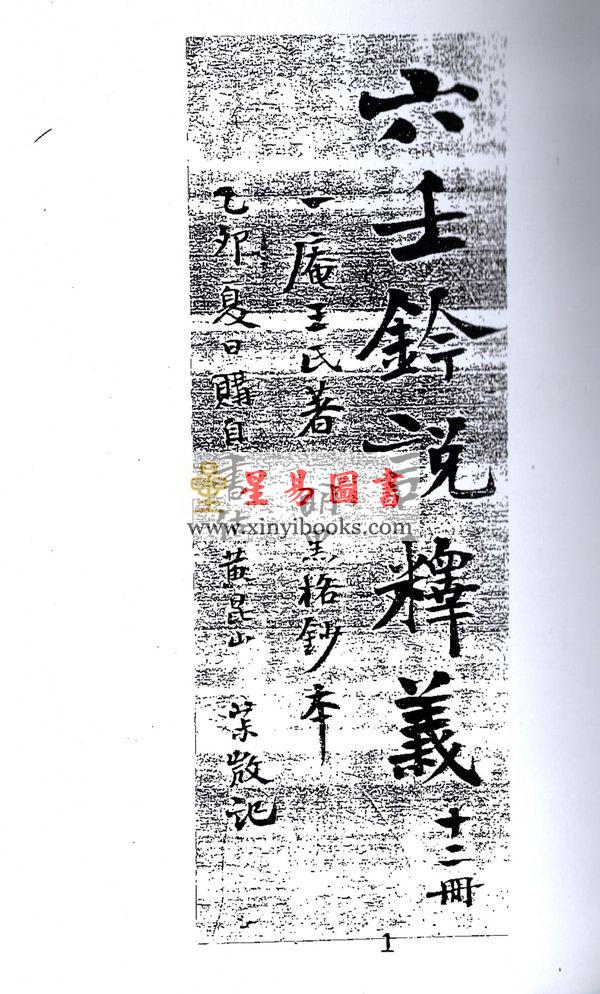 六壬鈐説釋義 十二冊
一庵王氏著 明黑格鈔本
乙卯夏日購自 黃昆山 記
星易圖書
www.xinyibooks.com
1